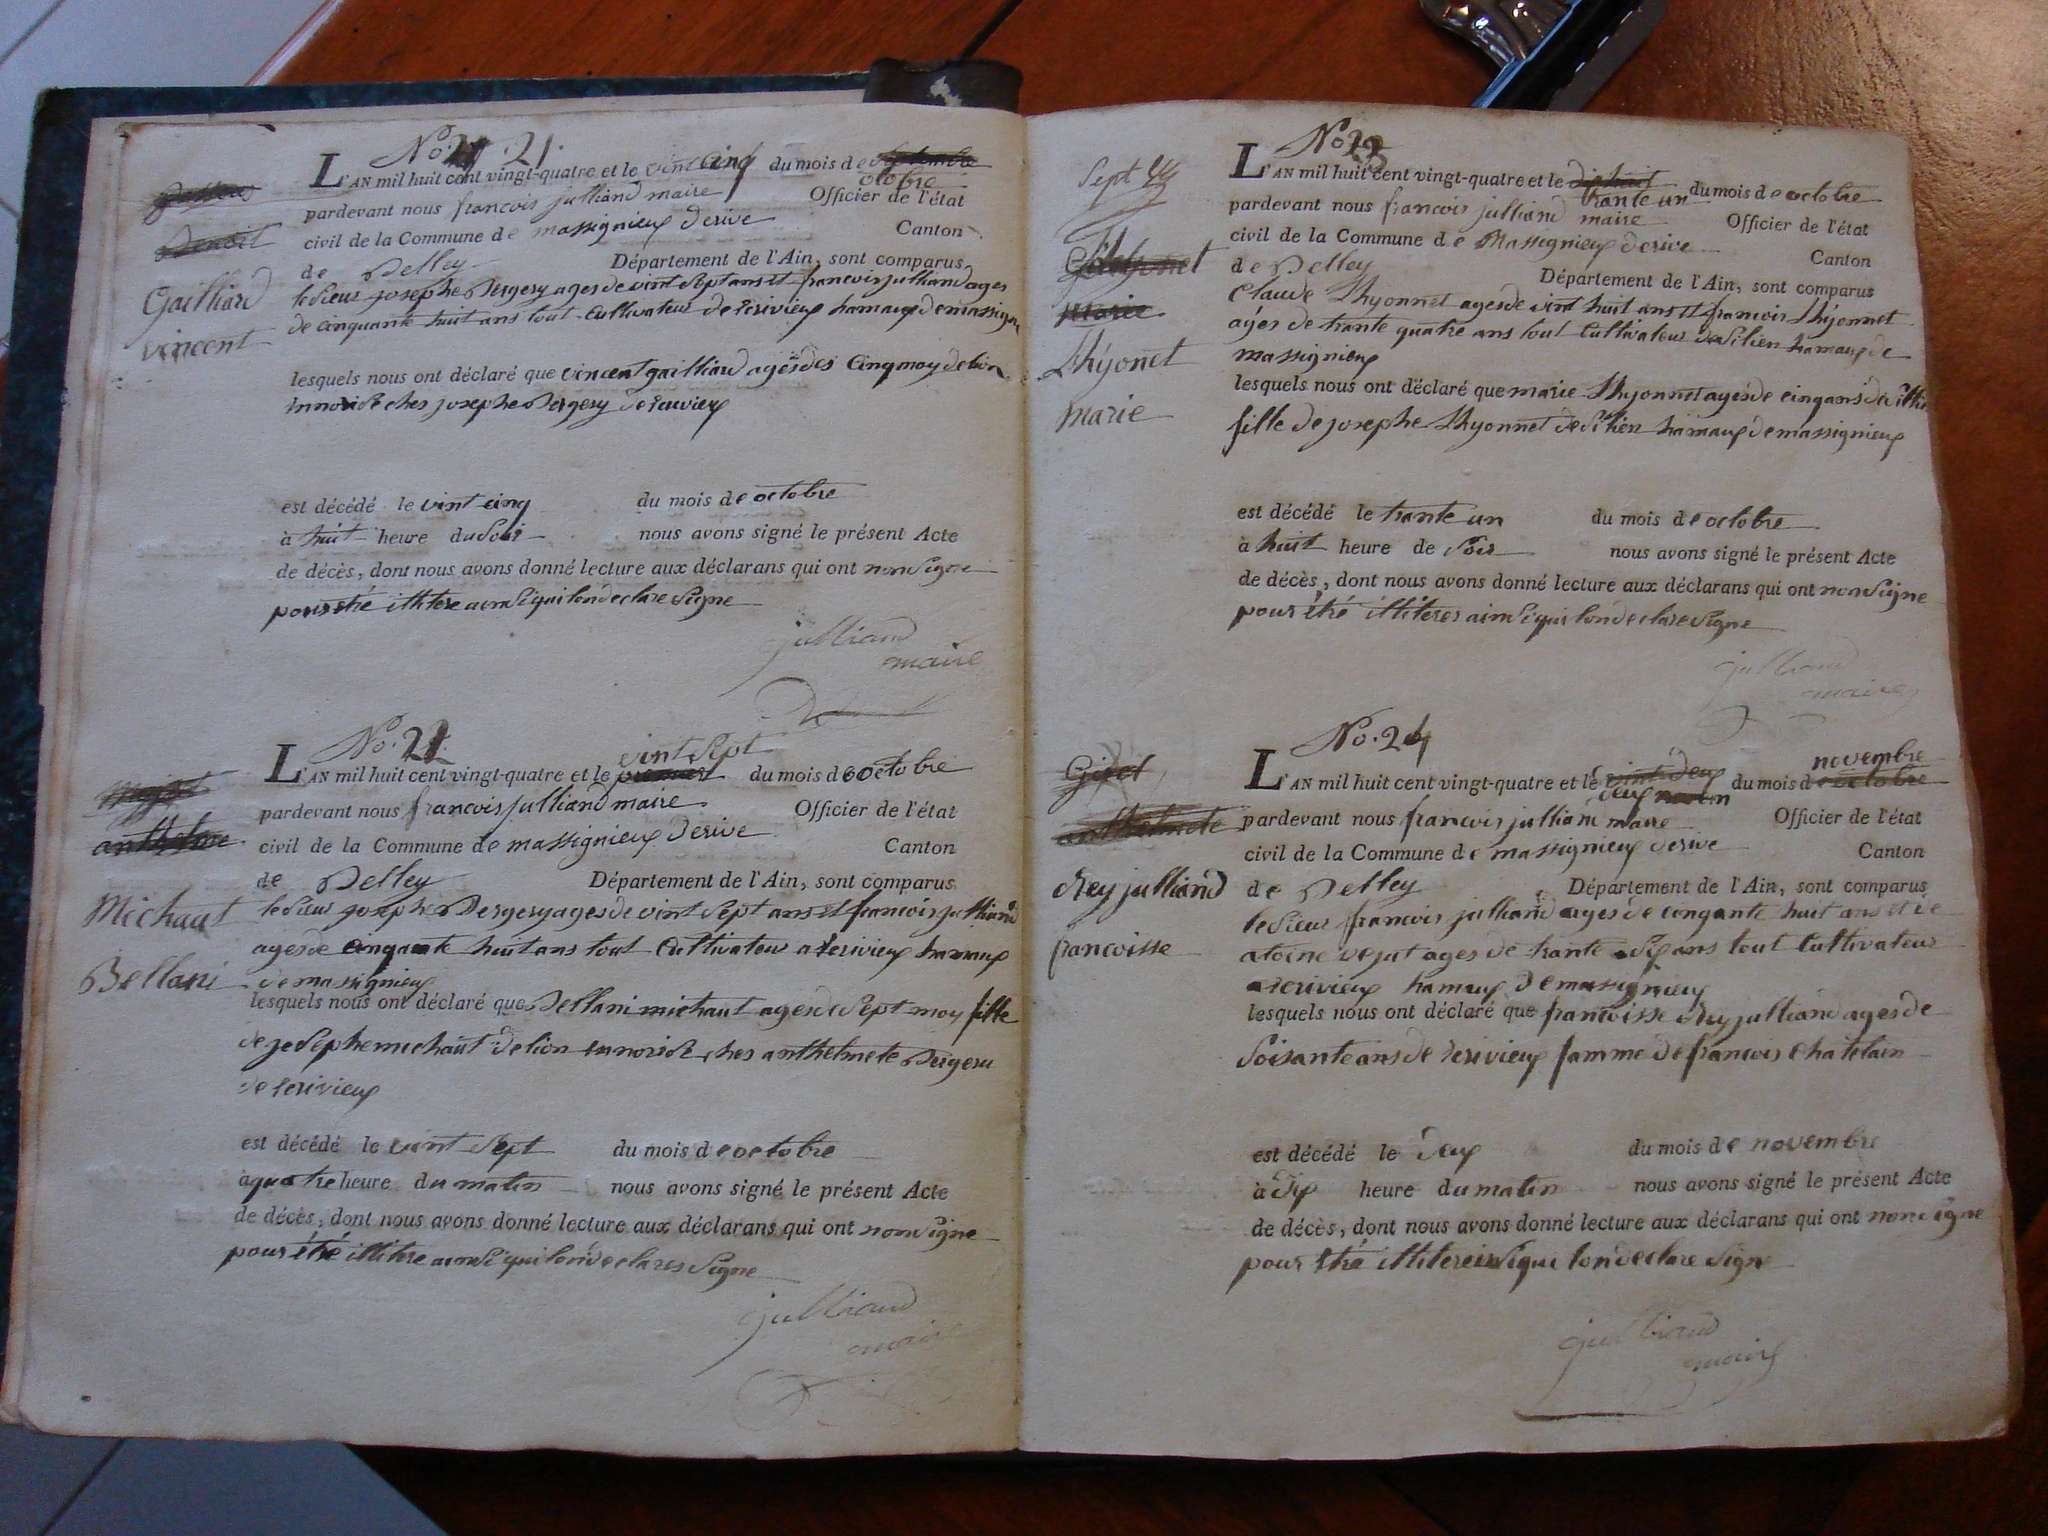 No. 21.
L'AN mil huit cent vingt-quatre et le vint cinq du mois de septembre
octobre
pardevant nous francois julliand maire Officier de l'état
civil de la Commune de massignieux derive Canton
de Belley Département de l'Ain, sont comparus
le sieur josephe Bergery ages de vint sept ans et francois julliand ages
de cinquante huit ans tout cultivateur de hamaux de massignieux
Benoit
Gailliard
vincent
lesquels nous ont déclaré que vincent gailliard ages des cinq moy de lion
chez josephe Bergery de
est décédé le vint cinq du mois de octobre
à huit heure du soir nous avons signé le présent Acte
de décès, dont nous avons donné lecture aux déclarans qui ont non signe
pour etré illitere ainsi qui lon declare signe
julliand
maire
No. 22
vint sept
L'AN mil huit cent vingt-quatre et le premier du mois de octobre
pardevant nous francois julliand maire Officier de l'état
civil de la Commune de massignieux derive Canton
de Belley Département de l'Ain, sont comparus
le sieur josephe Bergery ages de vint sept ans et francois julliand
ages de cinqante huit ans tout cultivateur a hamaux
de massignieux
anthelme
Michaut
Bellani
lesquels nous ont déclaré que Bellani michaut ages de sept moy fille
de josephe michaut de lion chez anthelmete Bergeru
de
est décédé le vint sept du mois de octobre
à quatre heure du matin nous avons signé le présent Acte
de décès, dont nous avons donné lecture aux déclarans qui ont non signe
pour etré illitere ainsi qui lon declares signe
julliand
maire
Sept
No. 23
L'AN mil huit cent vingt-quatre et le dixhuit du mois de octobre
trante un
pardevant nous francois julliand maire Officier de l'état
civil de la Commune de Massignieux derive Canton
de Belley Département de l'Ain, sont comparus
Claude Lhyonnet ages de vint huit ans et francois Lhyonnet
ages de trante quatre ans tout cultivateur de silien hamaux de
massignieux
marie
Lhyonet
marie
lesquels nous ont déclaré que marie Lhyonnet ages de cinq ans de sillien
fille de josephe Lhyonnet de silien hamaux de massignieux
est décédé le trante un du mois de octobre
à huit heure de soir nous avons signé le présent Acte
de décès, dont nous avons donné lecture aux déclarans qui ont non signe
pour etré illiteres ainsi qui lon declare signe
julliand
maire
No. 24
novembre
L'AN mil huit cent vingt-quatre et le vint deux du mois de octobre
deux
pardevant nous francois julliand maire Officier de l'état
civil de la Commune de massignieux derive Canton
de Belley Département de l'Ain, sont comparus
le sieur francois julliand ages de cinqante huit ans et de
atoine vejat ages de trante six ans tout cultivateur
hamaux de massignieux
Girel
anthelmete
Rey julliand
francoisse
lesquels nous ont déclaré que francoisse Rey julliand ages de
soisante ans de famme de francois Chatelain
est décédé le deux du mois de novembre
à six heure du matin nous avons signé le présent Acte
de décès, dont nous avons donné lecture aux déclarans qui ont non signe
pour etré illitere insi qui lon declare signe
julliand
maire